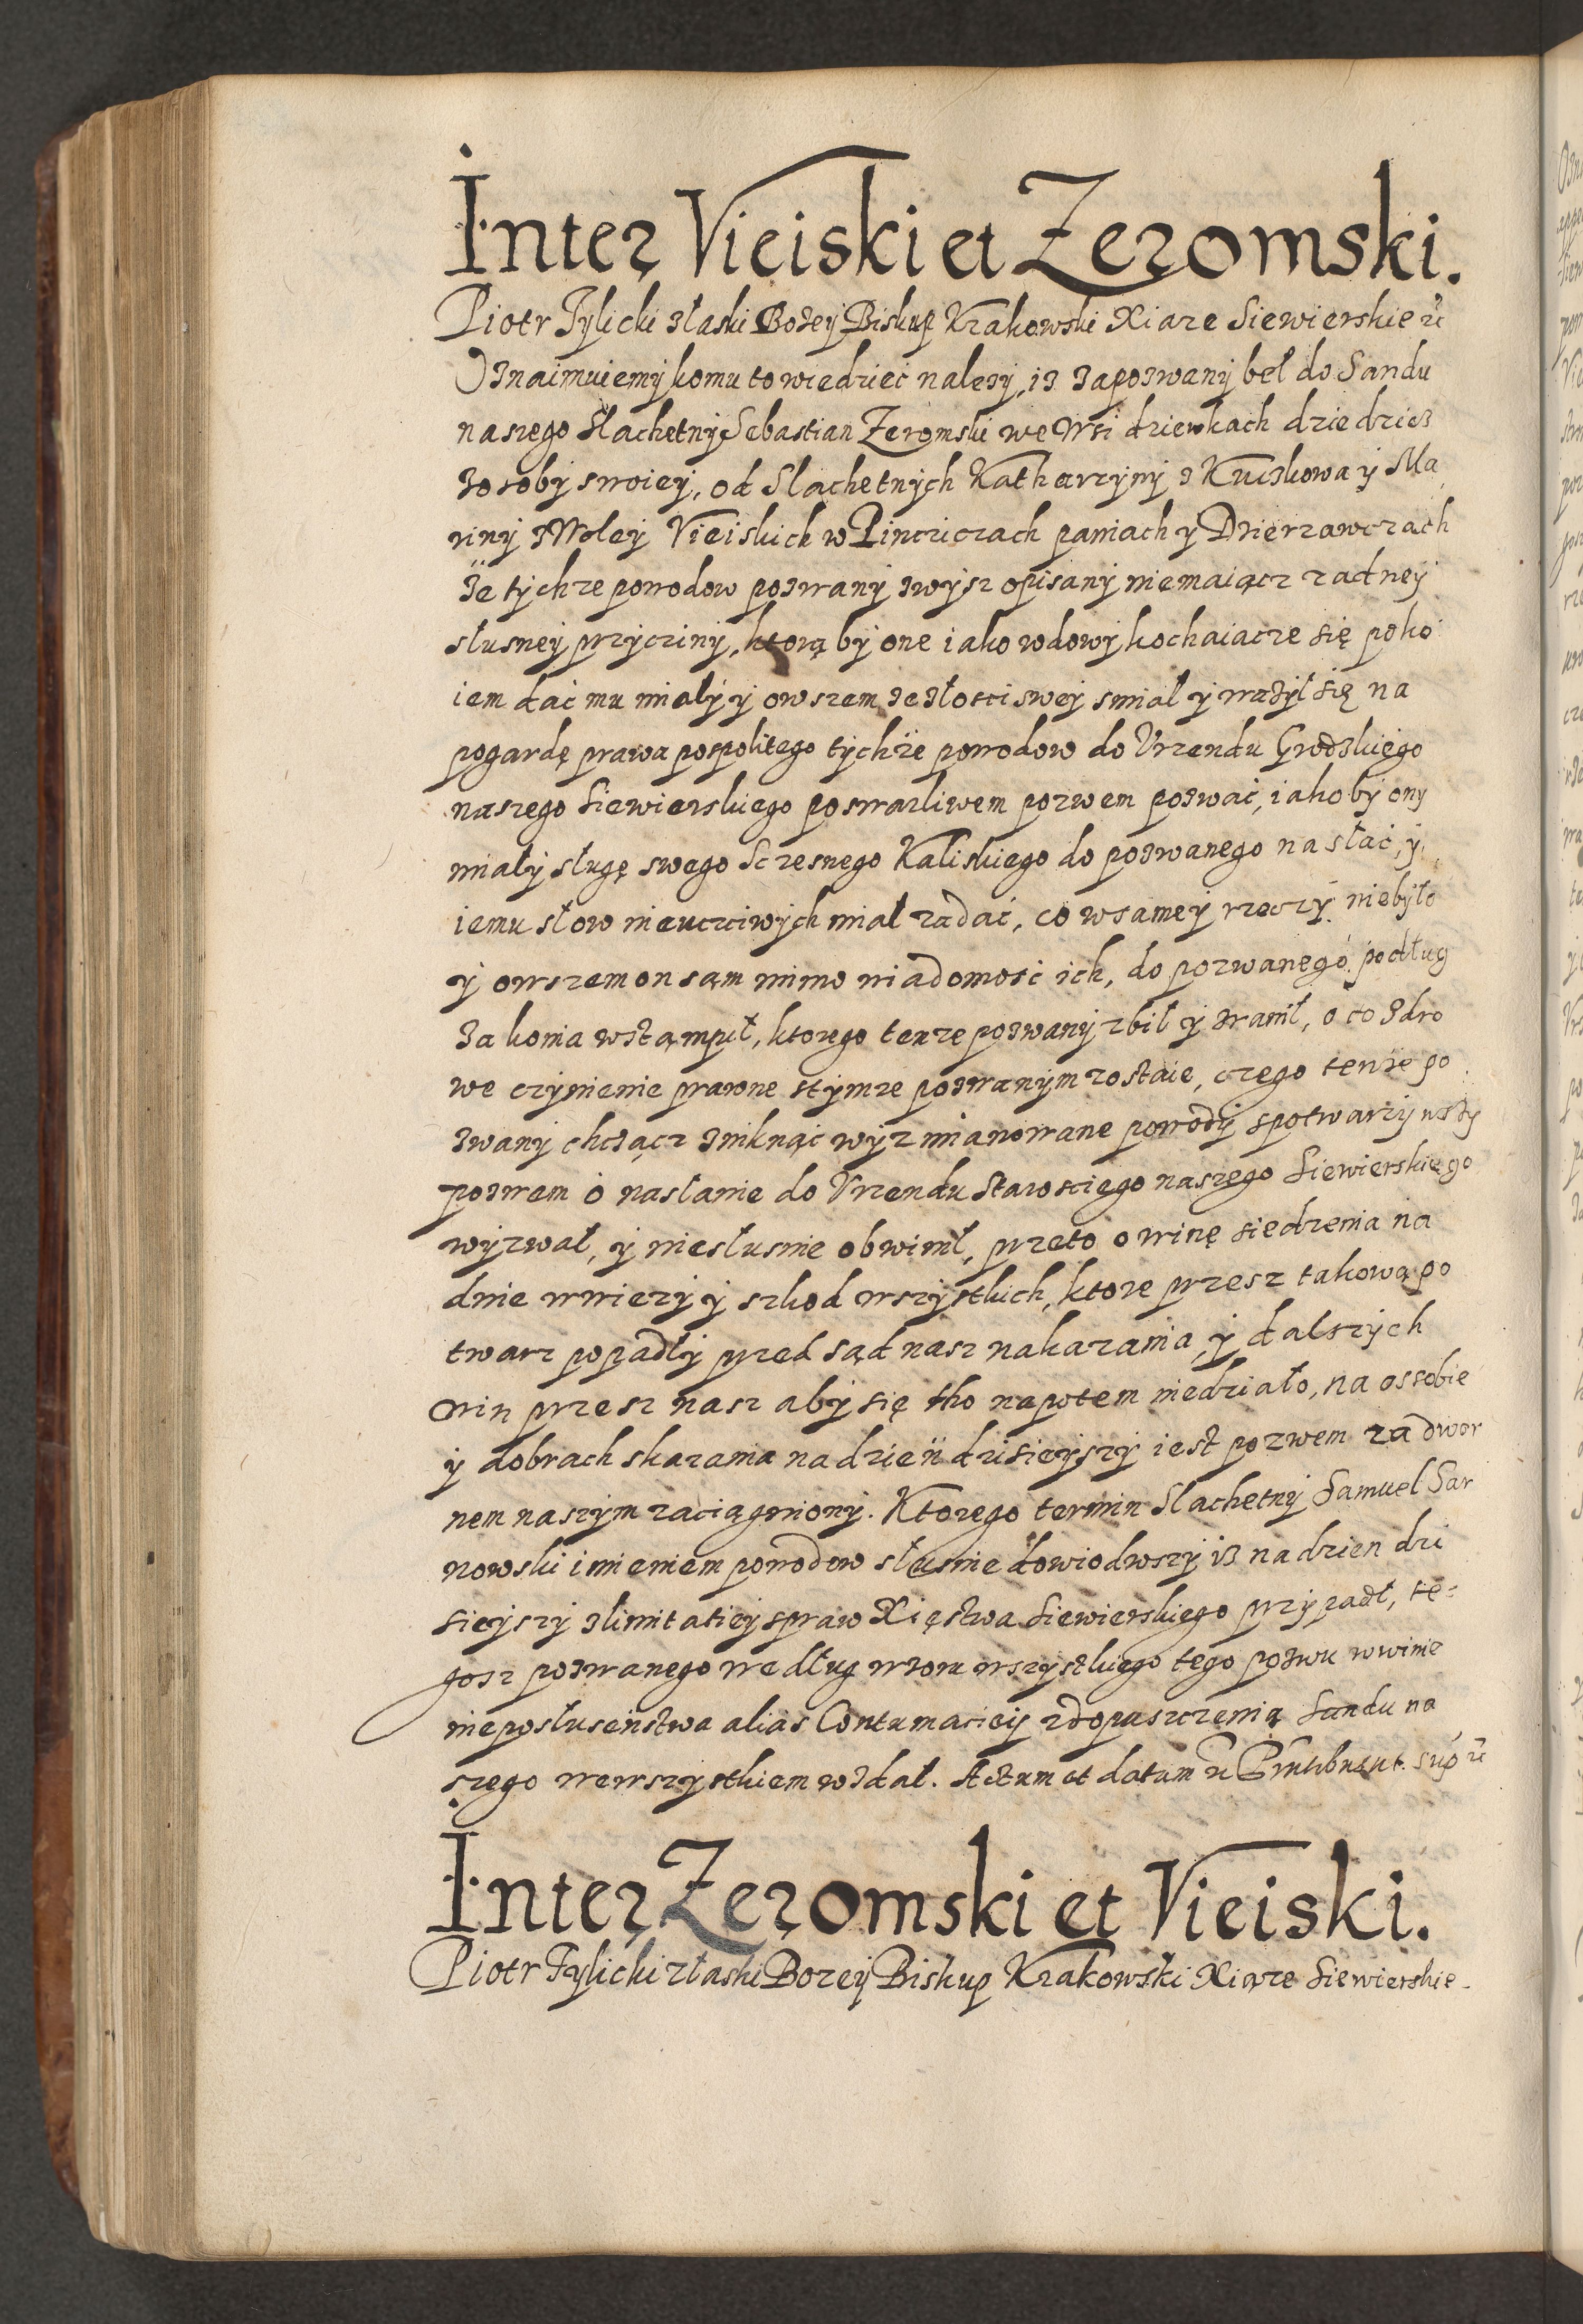 Inter Vieiski et Zeromski.
Piotr Tylicki złaski Bożey Biskup Krakowski Xiaze Siewierskie &c
Oznaimuiemy komu to wiedzieć należy, iż zapozwany beł do Sandu
naszego Slachetny Sebastian Zeromski we Wsi dziewkach dziedzicz
zosoby swoiey, od Slachetnych Katharzyny z Kuczkowa y Ma
riny z Woley Vieiskich w Pinczicach paniach y Dzierzawczach
Że tychze powodow pozwany zwysz opisany niemaiącz zadney
słusney przyczyny, ktorą by one iako wdowy kochaiacze się poko
iem dać mu miały y owszem ze złosci swey smiał y ważył się na
pogardę prawa pospolitego tychże powodow do Vrzendu Grodzkiego
naszego Siewierskiego poswarliwem pozwem pozwać, iakoby ony
miały sługę swego Sczesnego Kaliskiego do pozwanego nasłać, y
iemu słow nieuczciwych miał zadać, co wsamey rzeczy niebyło
y owszem on sam mimo wiadomość ich, do pozwanego podług
za konia wstąmpił, ktorego tenze pozwany zbił y zranił, o co zdro
we czynienie prawne stymze pozwanym zostaie, czego tenże po
zwany chczącz zniknąć wyzmianowane powody spotwarzywszy
pozwem o nasłanie do Vrzendu Starosciego naszego Siewierskiego
wyzwał, y niesłusnie obwinił, przeto o winę siedzenia na
dnie wwiezy y szkod wszystkich, ktore przesz takową po
twarz popadły przed sąd nasz nakazania, y dalszych
win przesz nasz aby się tho napotem niedziało, na ossobie
y dobrach skazania na dzień dzisieyszy iest pozwem zadwor
nem naszym zaciągniony. Ktorego termin Slachetny Samuel Sar
nowski imieniem powodow słusnie dowiodwszy iż na dzien dzi
sieyszy zlimitatiey spraw Xięstwa Siewierskiego przypadł, te=
gosz pozwanego według wzoru wszystkiego tego pozwu w winie
nieposłuseństwa alias Contumaciey zdopuszczenia Sandu na
szego wewszystkiem wzdał. Actum et datum &c Pñtibus ut sup &c
Inter Zeromski et Vieiski.
Piotr Tylicki złaski Bozey Biskup Krakowski Xiąze Siewierskie